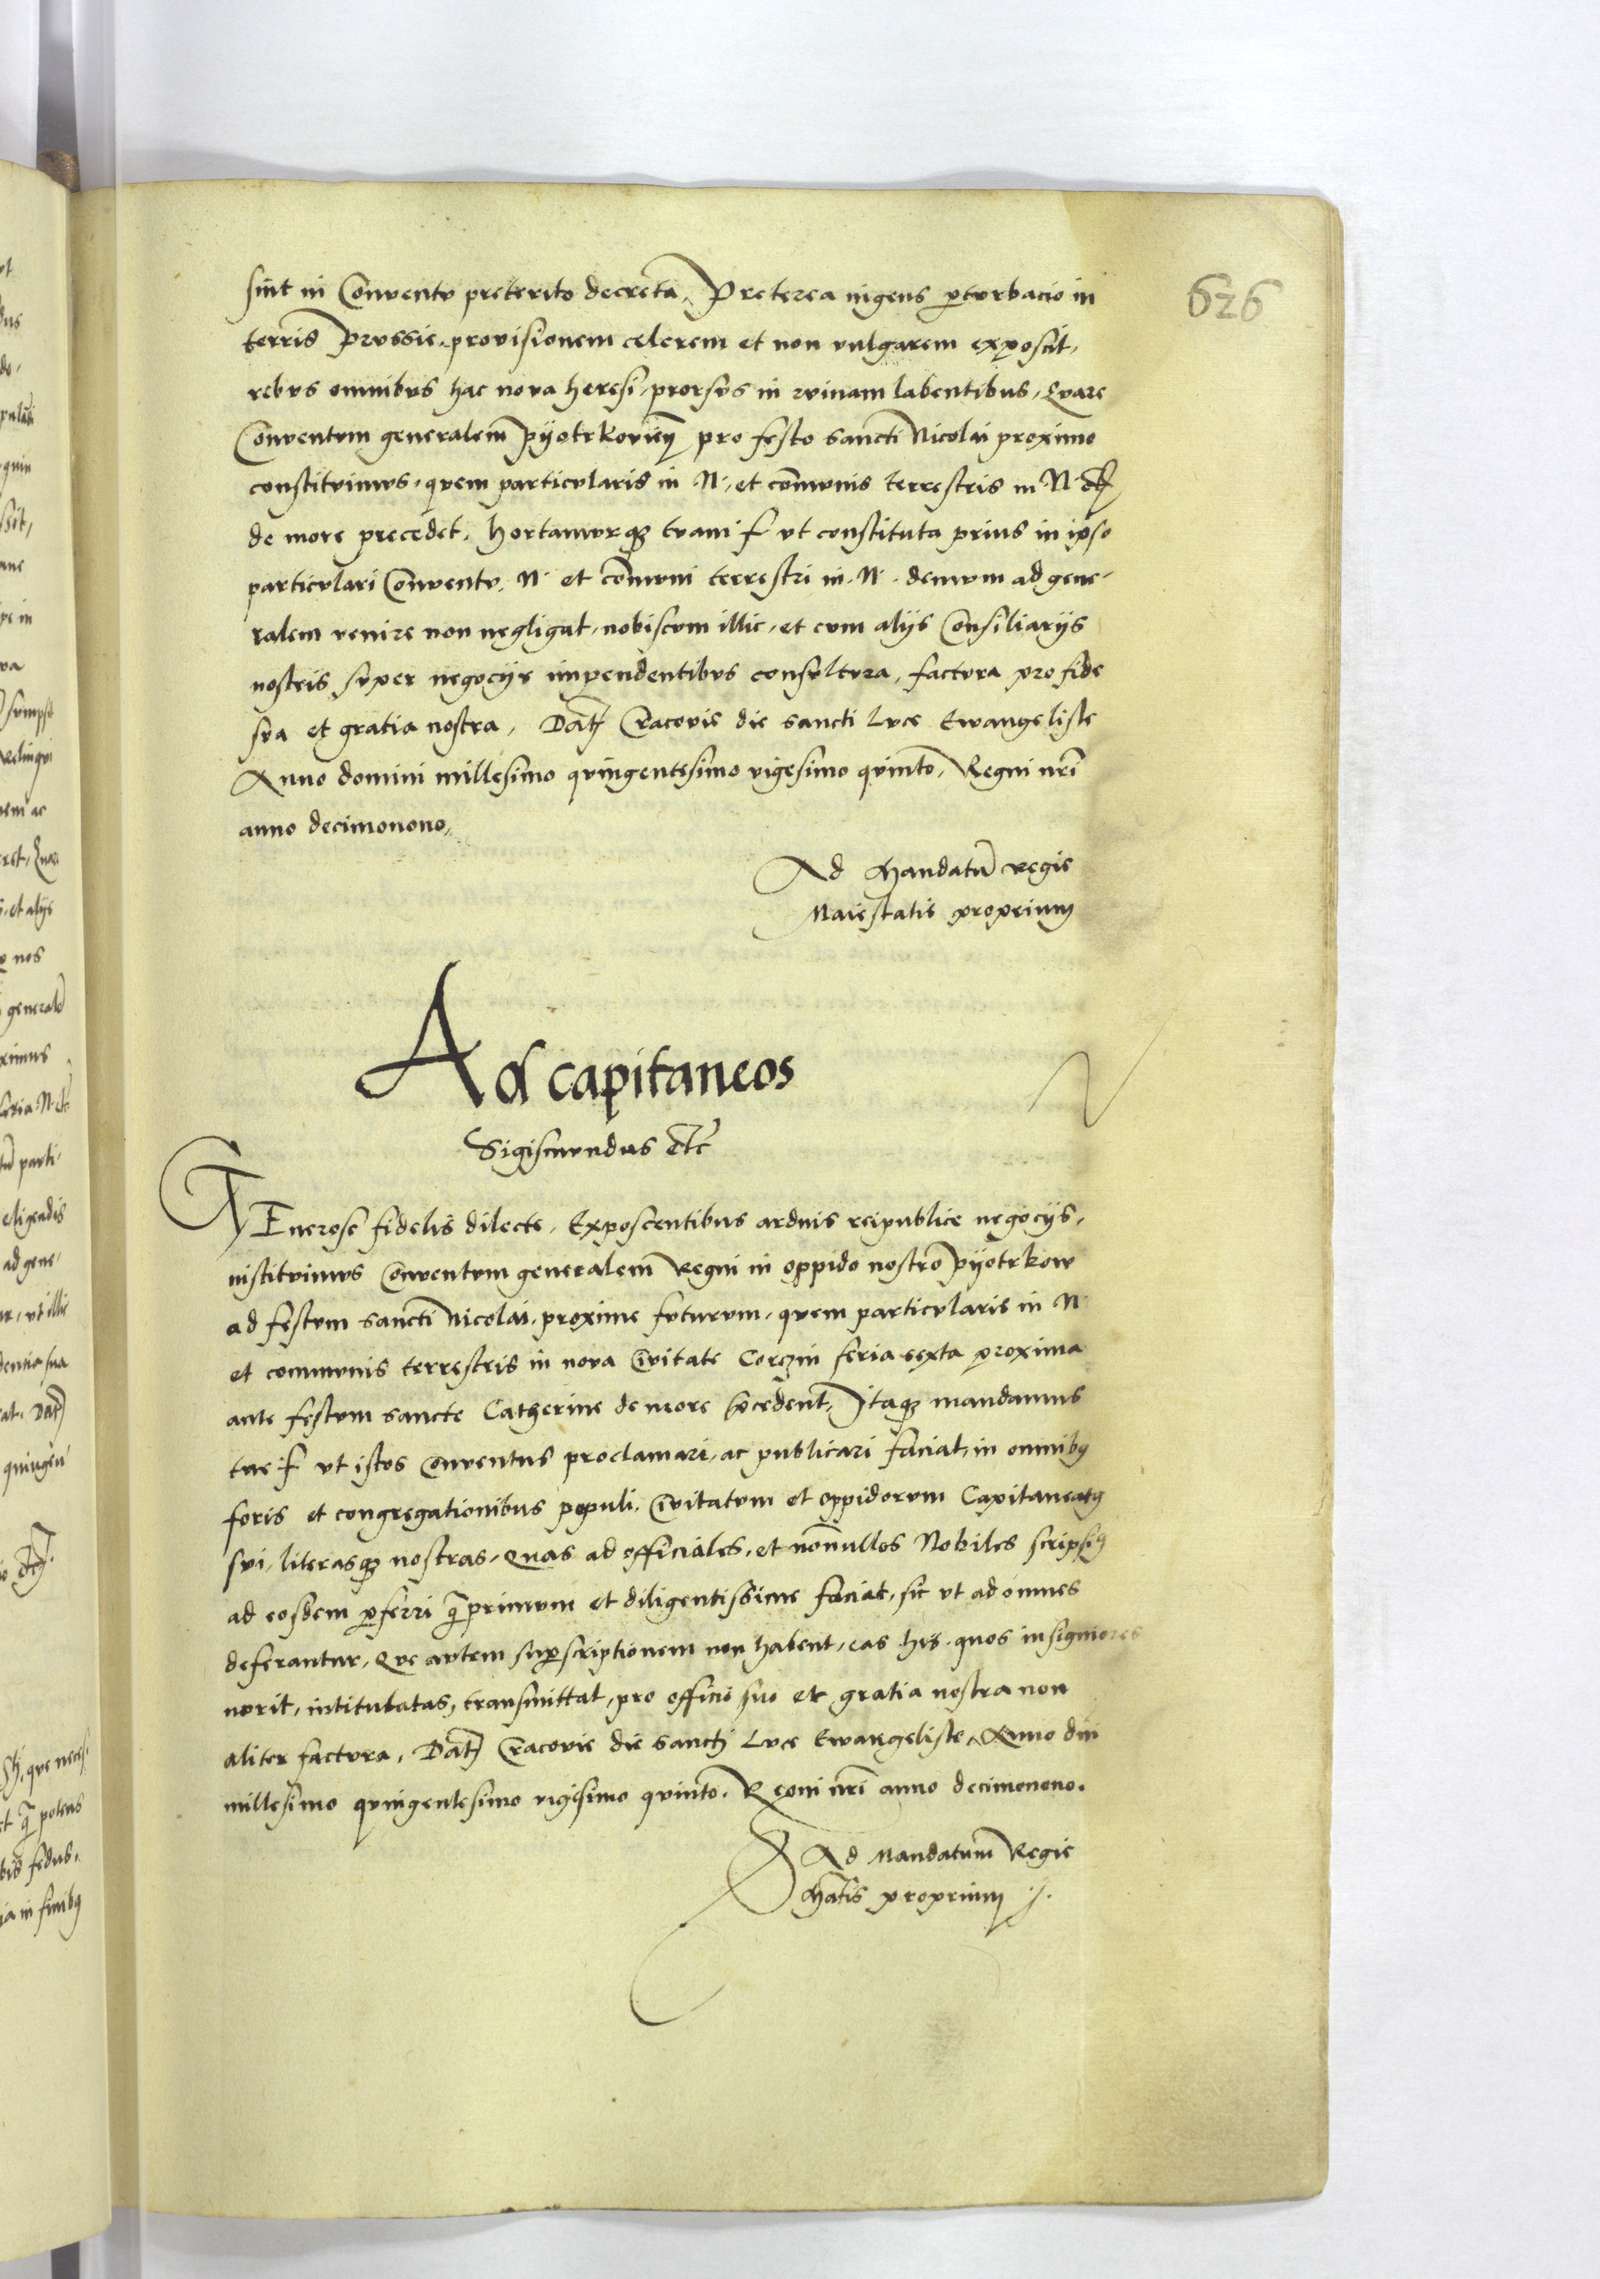 626
sint in Conventv preterito decreta, Preterea ingens ꝑtvrbacio in
terris Prvssie, provisionem celerem et non vulgarem exposcit,
rebvs omnibvs hac nova heresi, prorsvs in rvinam labentibus, Qvare
Conventvm generalem̄ Pÿotrkovień pro festo sancti Nicolai proximo
constitvimvs, qvem particvlaris in N. et com̄vnis terrestris in N. etc
de more precedet, Hortamvrqꝫ tvam f vt constituta prius in ipso
particvlari Conventv. N. et com̄vni terrestri in. N. demvm ad gene-
ralem venire non negligat, nobiscvm illic, et cvm alijs Consiliarijs
nostris svper negocijs impendentibvs consvltvra, factvra pro fide
sva et gratia nostra, Dat̄ Cracovie die sancti Lvce Ewangeliste
Anno domini millesimo qvingentesimo vigesimo qvinto, Regni nr̄i
anno decimonono,
Ad Mandatū regie
Maiestatis proprium
Ad capitaneos
Sigismvndus etc
GEnerose fidelis dilecte, Exposcentibus ardvis reipublice negocijs,
institvimvs Conventvm generalem̄ Regni in oppido nostro Pÿotrkow
ad festvm sancti Nicolai, proxime fvturvm, qvem particvlaris in N.
et commvnis terrestris in nova Civitate Corczin feria sexta proxima
ante festvm sancte Catherine de more p̄cedent, Itaqꝫ mandamus
tue f vt istos Conventus proclamari, ac publicari faciat, in omnibꝰ
foris et congregationibus populi, Civitatvm et oppidorvm Capitaneatꝰ
svi, literasqꝫ nostras, Quas ad officiales, et non̄ullos Nobiles scripsimꝰ
ad eosdem ꝑferri q̄primvm et diligentissime faciat, sic vt ad omnes
deferantvr, Qve avtem suꝑscriptionem non habent, eas his quos insigniores
norit, intitulatas, transmittat, pro officio suo et gratia nostra non
aliter factvra, Dat̄ Cracovie die sancti Lvce Ewangeliste, Anno dni
millesimo qvingentesimo vigesimo qvinto, Regni nr̄i anno decimonono.
Ad Mandatum̄ Regie
Mat̄is proprium